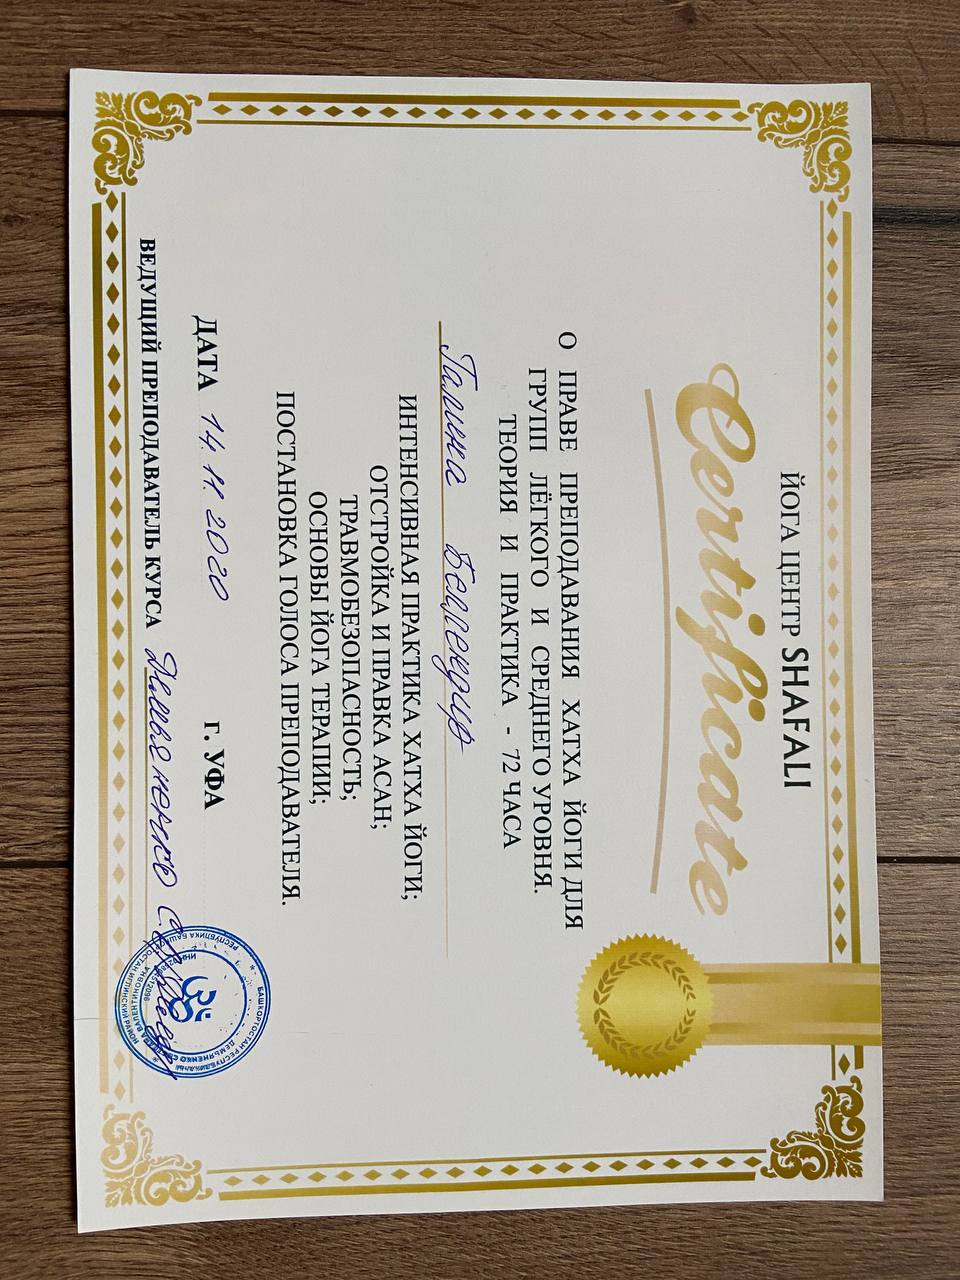 ЙОГА ЦЕНТР SHAFALI
Certificate
О ПРАВЕ ПРЕПОДАВАНИЯ ХАТХА ЙОГИ ДЛЯ
ГРУПП ЛЁГКОГО И СРЕДНЕГО УРОВНЯ.
ТЕОРИЯ И ПРАКТИКА - 72 ЧАСА
Галина Беллендир
ИНТЕНСИВНАЯ ПРАКТИКА ХАТХА ЙОГИ;
ОТСТРОЙКА И ПРАВКА АСАН;
ТРАВМОБЕЗОПАСНОСТЬ;
ОСНОВЫ ЙОГА ТЕРАПИИ;
ПОСТАНОВКА ГОЛОСА ПРЕПОДАВАТЕЛЯ.
ДАТА 14.11.2020 г. УФА
ВЕДУЩИЙ ПРЕПОДАВАТЕЛЬ КУРСА Демьяненко С.
БАШКОРТОСТАН РЕСПУБЛИКАҺЫ
РЕСПУБЛИКА БАШКОРТОСТАН ИГЛИНСКИЙ РАЙОН
ДЕМЬЯНЕНКО
ВАЛЕНТИНОВНА
ॐ